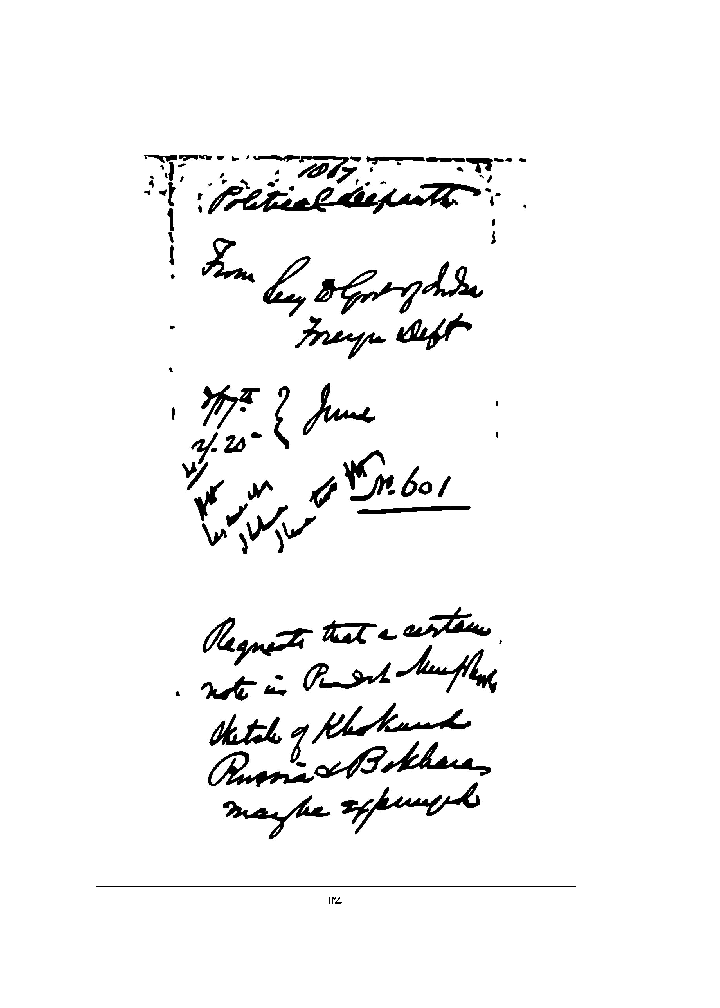 1867
Political Departt
From
Secy to Govt of India
Foreign Dept
D/17th } June
R/20
No. 601
Requests that a certain
note in Pundit Munphool's
sketch of Khokund
Russia & Bokhara
may be expunged
112